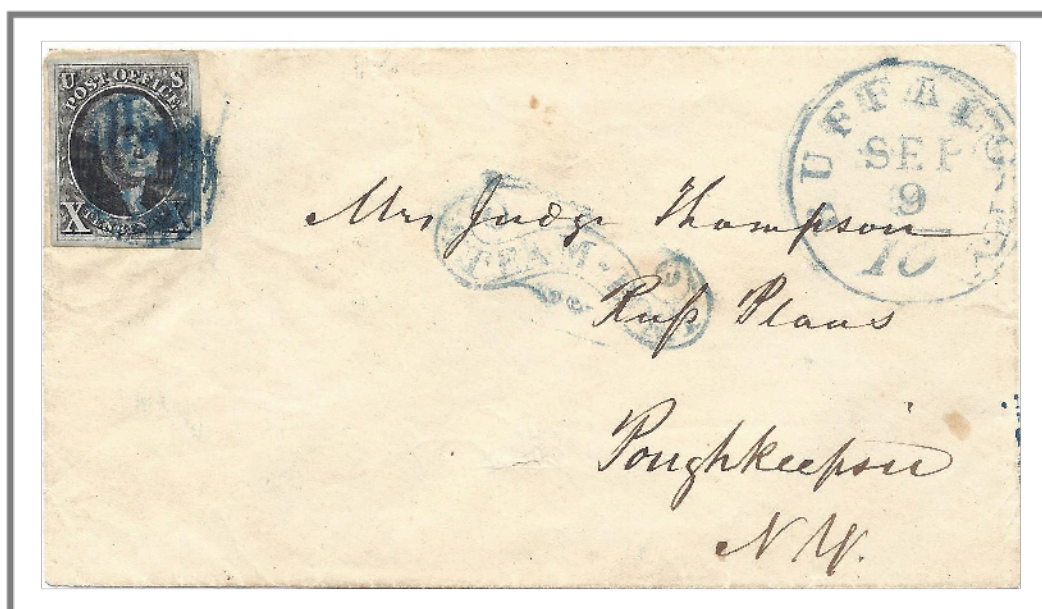 U S
POST OFFICE
X X
BUFFALO N.Y.
SEP
9
10
STEAM-BOAT
Mrs Judge Thompson
Russ Plaas
Poughkeepsie
N Y.